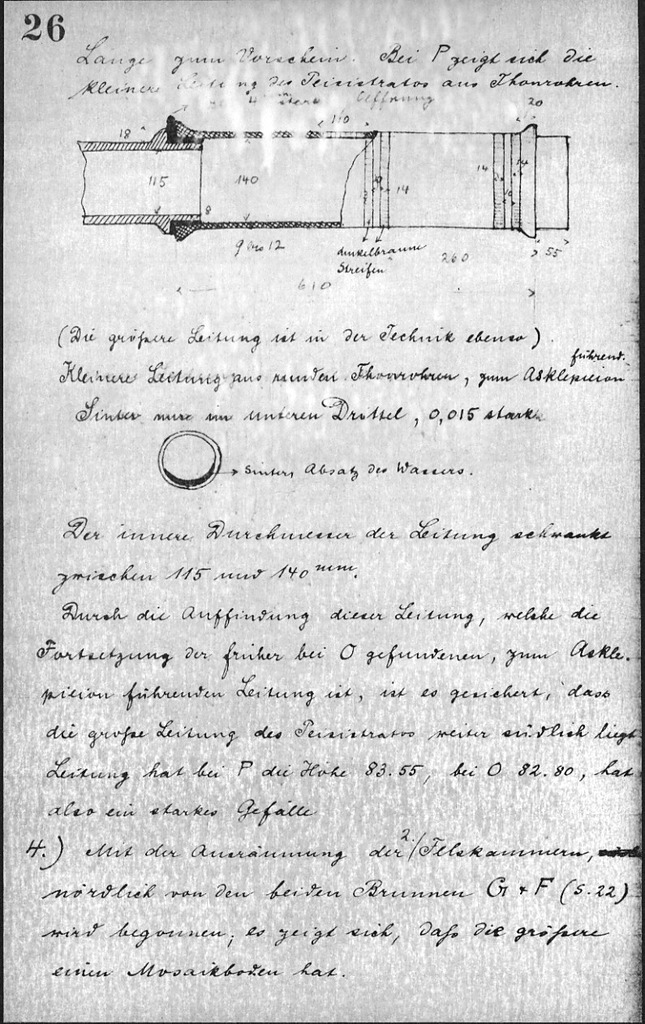 26
Länge zum Vorschein. Bei P zeigt sich die
kleinere Leitung des Peisistratos aus Thonrohren.
4 mm stark Öffnung
110
20
18
115
140
14
14
8
9 bis 12
dunkelbraune
Streifen
260
55
610
(Die größere Leitung ist in der Technik ebenso).
Kleinere Leitung aus runden Thonrohren, zum Asklepieion führend.
Sinter nur im unteren Drittel, 0,015 stark
Sinter, Absatz des Wassers.
Der innere Durchmesser der Leitung schwankt
zwischen 115 und 140 mm.
Durch die Auffindung dieser Leitung, welche die
Fortsetzung der früher bei O gefundenen, zum Askle-
pieion führenden Leitung ist, ist es gesichert, dass
die große Leitung des Peisistratos weiter südlich liegt
Leitung hat bei P die Höhe 83.55, bei O 82.80, hat
also ein starkes Gefälle
4.) Mit der Ausräumung der 2 Felskammern,
nördlich von den beiden Brunnen G + F (S. 22)
wird begonnen; es zeigt sich, daß die größere
einen Mosaikboden hat.